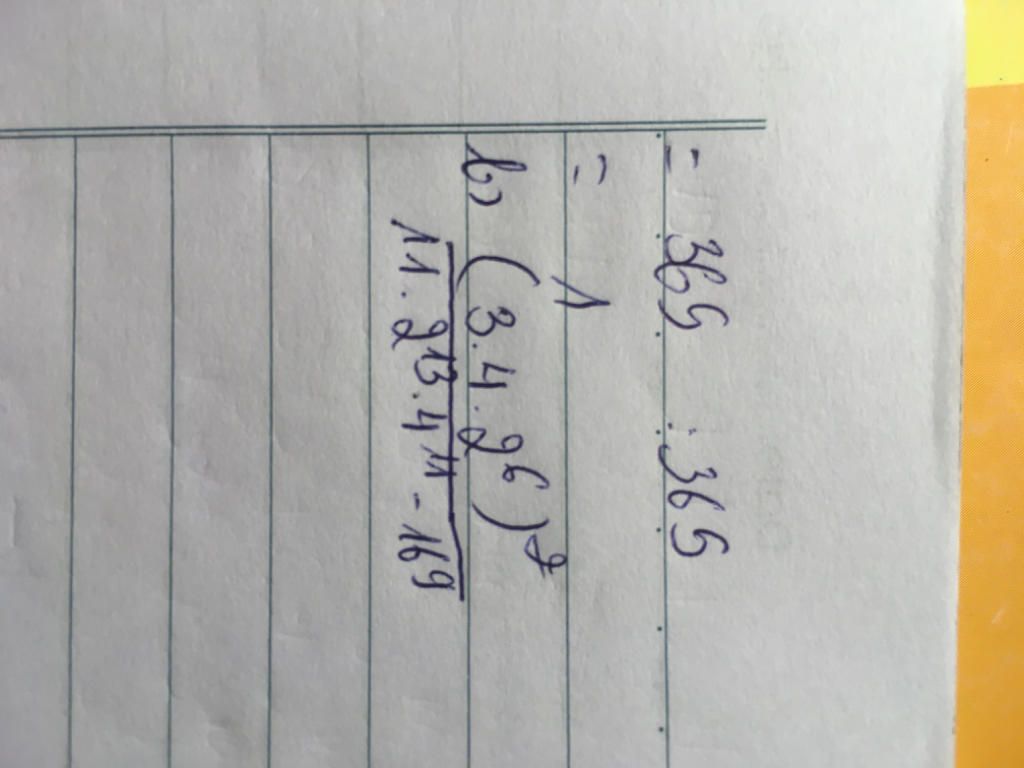 = 365 : 365
= 1
b, (3.4.2⁶)²
11.2¹³.4¹¹ - 16⁹